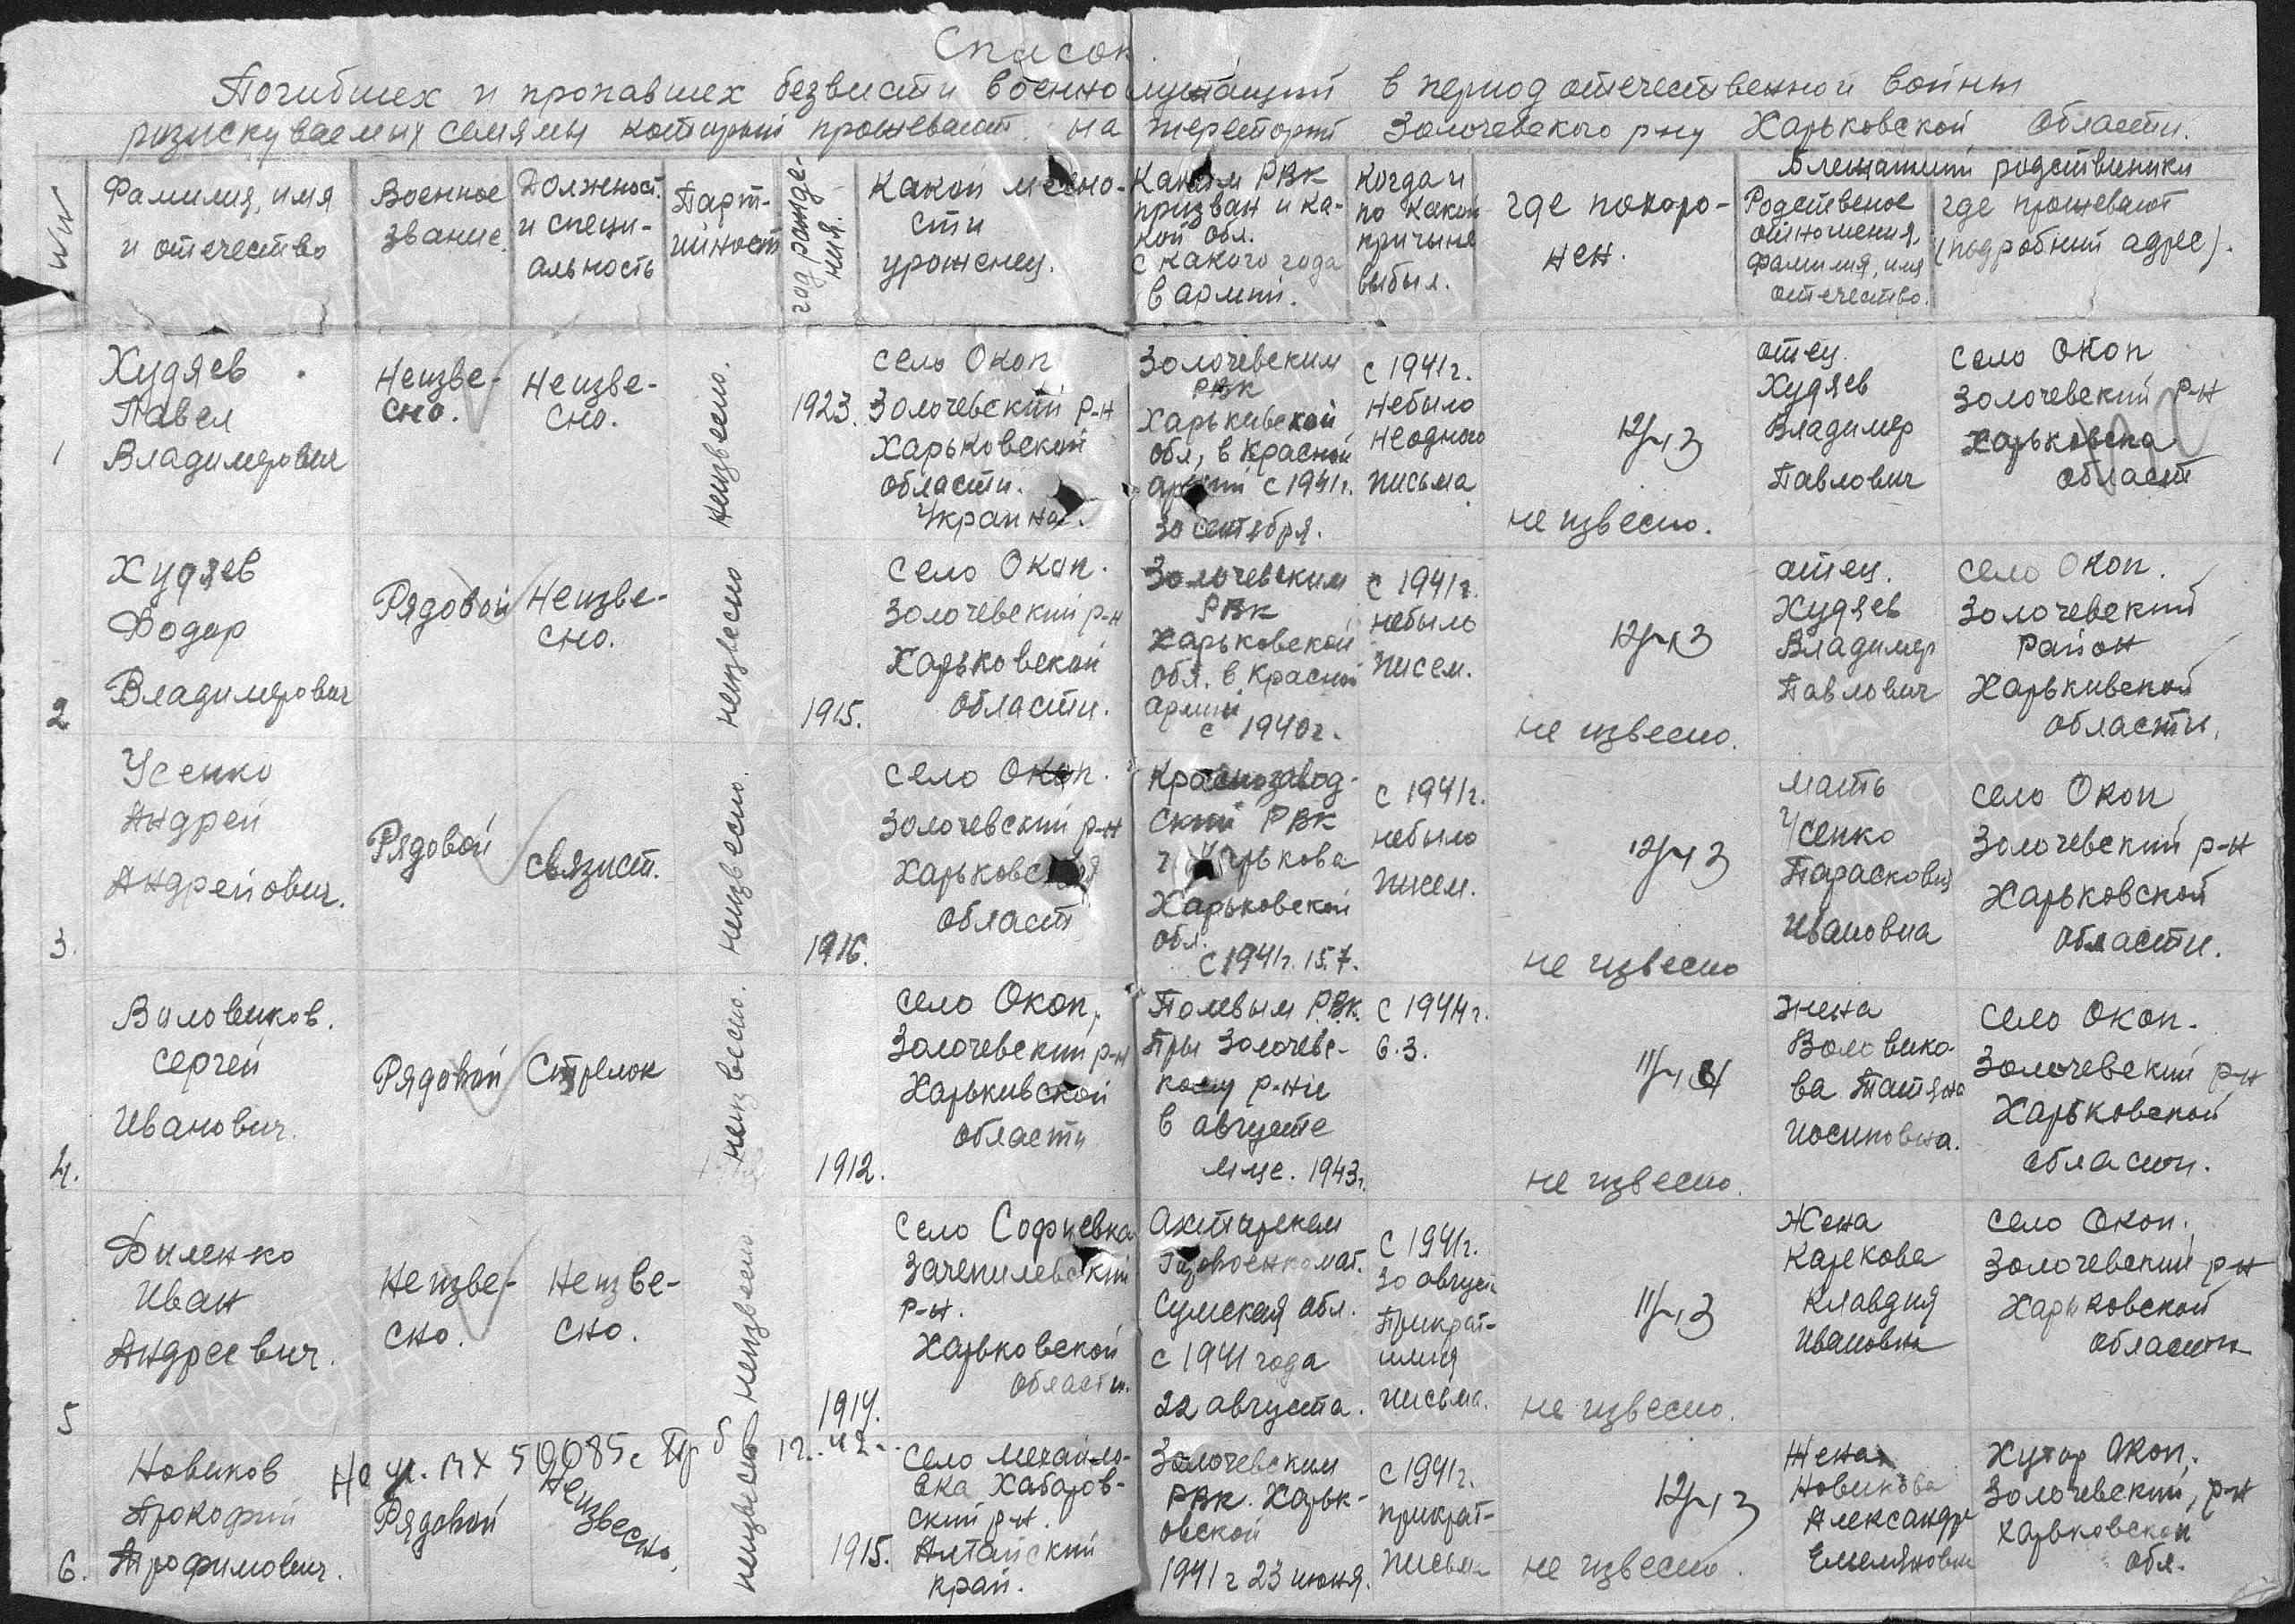 Список
Погибших и пропавших безвисти военнослужащий в период отечественной войны
розискуваемых семямы который прожевают на тереторт Золочевского рну Харьковской Области.
Фамилия, имя
и отечество
Военное
звание.
Должност.
и специ-
альность
Парт-
ийност
год рожде-
ния.
Какой месно-
сти
уроженец.
Каким РВК
призван и ка-
кой обл.
с какого года
в армии.
Когда и
по какой
причине
выбыл.
где похоро-
нен.
Ближайший родственики
Родственое
отношения,
фамилия, имя
отечество.
где прожевают
(подробний адрес).
1
Худяев
Павел
Владимерович
Неизве-
сно.
Неизве-
сно.
неизвесно.
1923.
село Окоп
Золочевский р-н
Харьковский
области.
Украина.
Золочевским
РВК
Харькивской
обл, в Красной
армии с 1941г.
30 сентября.
с 1941г.
небыло
неодного
письма
12/~13
не извесно.
отец.
Худяев
Владимер
Павлович
село Окоп
Золочевский р-н
Харьковска
област
2
Худяев
Федор
Владимерович
Рядовой
Неизве-
сно.
неизвесно
1915.
село Окоп.
Золочевский р-н
Харьковской
области.
Золочевским
РВК
Харьковской
обл. в Красной
армии
с 1940г.
с 1941г.
небыло
писем.
12/~13
не извесно.
отец.
Худяев
Владимер
Павлович
село Окоп.
Золочевский
район
Харькивской
области.
3.
Усенко
Андрей
Андрейович.
Рядовой
связист.
неизвесно.
1916.
село Окоп.
Золочевский р-н
Харьковская
област
Краснозавод-
ский РВК
г Харькова
Харьковской
обл.
с 1941г. 15.7.
с 1941г.
небыло
писем.
12/~13
не извесно
мать
Усенко
Парасковия
Ивановна
село Окоп
Золочевский р-н
Харьковской
области.
4.
Воловиков.
Сергей
Иванович.
Рядовой
Стрелок
неизвесно.
1912.
село Окоп,
Золочевский р-н
Харькивской
области
Полевым РВК.
Пры Золочевс-
кому р-ни
в августе
м-це. 1943г.
с 1944г.
6.3.
11/~
не извесно.
жена
Воловико-
ва Татяна
Иосиповна.
село Окоп.
Золочевский р-н
Харьковской
области.
5
Биленко
Иван
Андреевич.
Неизве-
сно.
Неизве-
сно.
неизвесно
1914.
село Софиевка
Зачепилевский
р-н.
Харьковской
области.
Ахтирским
Горвоенкомат.
Сумская обл.
с 1941 года
22 августа.
с 1941г.
30 август
Прикрат-
илися
письма.
11/~13
не извесно.
Жена
Карекова
Клавдия
Ивановна
село Окоп.
Золочевский р-н
Харьковской
области
6.
Новиков
Прокофий
Трофимович.
50085с
Рядовой
неизвесно.
неизвесно
1915.
село Михайло-
вка Хабаров-
ский р-н.
Алтайский
край.
Золочевским
РВК. Харьк-
овской
1941г 23 июня.
с 1941г.
прикрат-
письма
12/~13
не извесно.
Жена
Новикова
Александра
Емеляновна
Хутор Окоп,
Золочевский, р-н
Харьковской
обл.